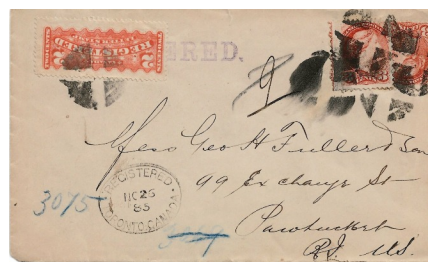 REGISTERED.
2
Mess Geo H Fuller & Son
99 Exchange St
Pawtucket
R.I. U.S.
REGISTERED
DC 26
83
TORONTO. CANADA
3075